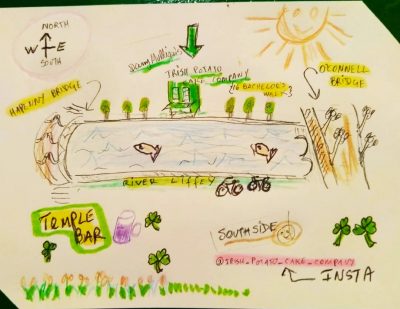 NORTH
W E
SOUTH
Sam Mulligan's
IRISH POTATO
CAKE COMPANY
{16 BACHELORS
WALK}
HA'PENNY BRIDGE
O'CONNELL
BRIDGE
RIVER LIFFEY
TEMPLE
BAR
SOUTHSIDE
@IRISH_POTATO_CAKE_COMPANY
INSTA